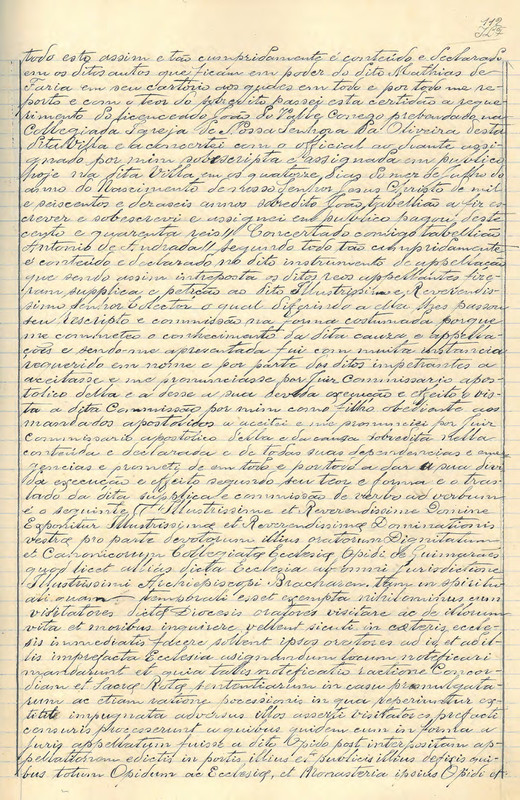 112
todo esto assim e tão cumpridamente é conteúdo e declarado
em os ditos autos que ficam em poder do dito Mathias de
Faria em seu cartorio aos quaes em todo e por todo me re-
porto e com o teor do predito passei esta certidão a reque-
rimento do licenceado João do Valle Conego prebendado na
Collegiada Igreja de Nossa Senhora da Oliveira desta
dita Villa e a concertei com o official ao deante assi-
gnado por mim sobescripta e assignada em publico
hoje na dita Villa em os quatorze dias do mez de
anno do Nascimento de nosso Senhor Jesus Christo de mil
e seiscentos e deraseis annos sobredito João tabellião a fiz es-
crever e sobescrevi e assignei em publico pagou deste
cento e quarenta reis Concertado comigo tabellião
Antonio de Andrada segundo todo tão cumpridamente
e conteudo e declarado no dito instrumento de appellação
que sendo assim interposta os ditos reos appellantes fize-
ram supplica e petição ao dito Illustrissimo e Reverendis-
simo senhor Collector o qual diferindo a ella lhes passou
seu rescripto e commissão na forma costumada porque
me cometteo o conhecimento da dita causa e appella-
ções e sendo-me apresentada fui com muita instancia
requerido em nome e por parte dos ditos impetrantes a
aceitasse e me pronunciasse por Juiz Commissario apos-
tolico della e a desse a sua devida execução e effeito e vis-
ta a dita Commissão por mim como filho obediente aos
mandados apostolicos a aceitei e me pronunciei por Juiz
Commissario apostolico della e da causa sobredita nella
contheuda e declarada e de todas suas dependencias e emer-
gencias e prometi de em todo e por todo a dar a sua devi-
da execução e effeito segundo seu teor e forma e o tras-
lado da dita supplica e commissão de verbo ad verbum
é o seguinte Illustrissime et Reverendissime Domine
Exponitur Illustrissimæ et Reverendissimæ Dominationis
vestræ pro parte devotorum illius oratorum Dignitatum
et Canonicorum Collegiatæ Ecclesiæ Opidi de Guimarães
quod licet alias dicta Ecclesia ab omni Jurisdictione
Illustrissimi Archiepiscopi Bracharem tam in spiritu-
ali quam temporali esset exempta nihilominus cum
visitatores dictæ Diocesis oratores visitare ac de illorum
vita et moribus inquirere vellent sicuti in cæteris eccle-
siis immediatis facere solent ipsos oratores ad id et ad il-
lis in prefacta Ecclesia assignandum locum notificari
mandarunt et quia talis notificatio ractione Concor-
diam et Sacræ Rotæ sententiarum in casu promulgata-
rum ac etiam ratione possessionis in qua reperiuntur ex-
titit impugnata adversus illos asserti visitatores prefacti
censuris processerunt a quibus quidem cum in forma
juris appellatum fuisse a dito Opido post interpositam ap-
pellationem edictis in portis illius et publicis illius defixis qui-
bus totum Opidum ac Ecclesiæ, et Monasteria ipsius Opidi et